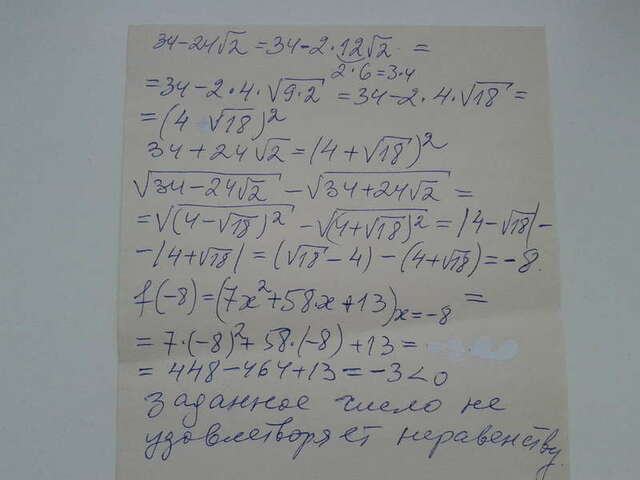 34-24√2 = 34-2·12√2 =
2·6=3·4
=34-2·4·√9·2 = 34-2·4·√18 =
=(4 √18)²
34+24√2=(4+√18)²
√34-24√2 - √34+24√2 =
=√(4-√18)² - √(4+√18)² = |4-√18| -
-|4+√18| = (√18-4)-(4+√18)=-8.
f(-8)=(7x²+58x+13)x=-8 =
= 7·(-8)²+58·(-8)+13=
= 448-464+13=-3<0
заданное число не
удовлетворяет неравенству.